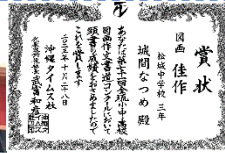 賞状
図画 佳作
松城中学校 三年
城間なつめ 殿
あなたは第七十一回全琉小中高校
図画作文書道コンクールにおいて
頭書の成績をおさめましたので
これを賞します
二〇二三年十月二十八日
沖縄タイムス社